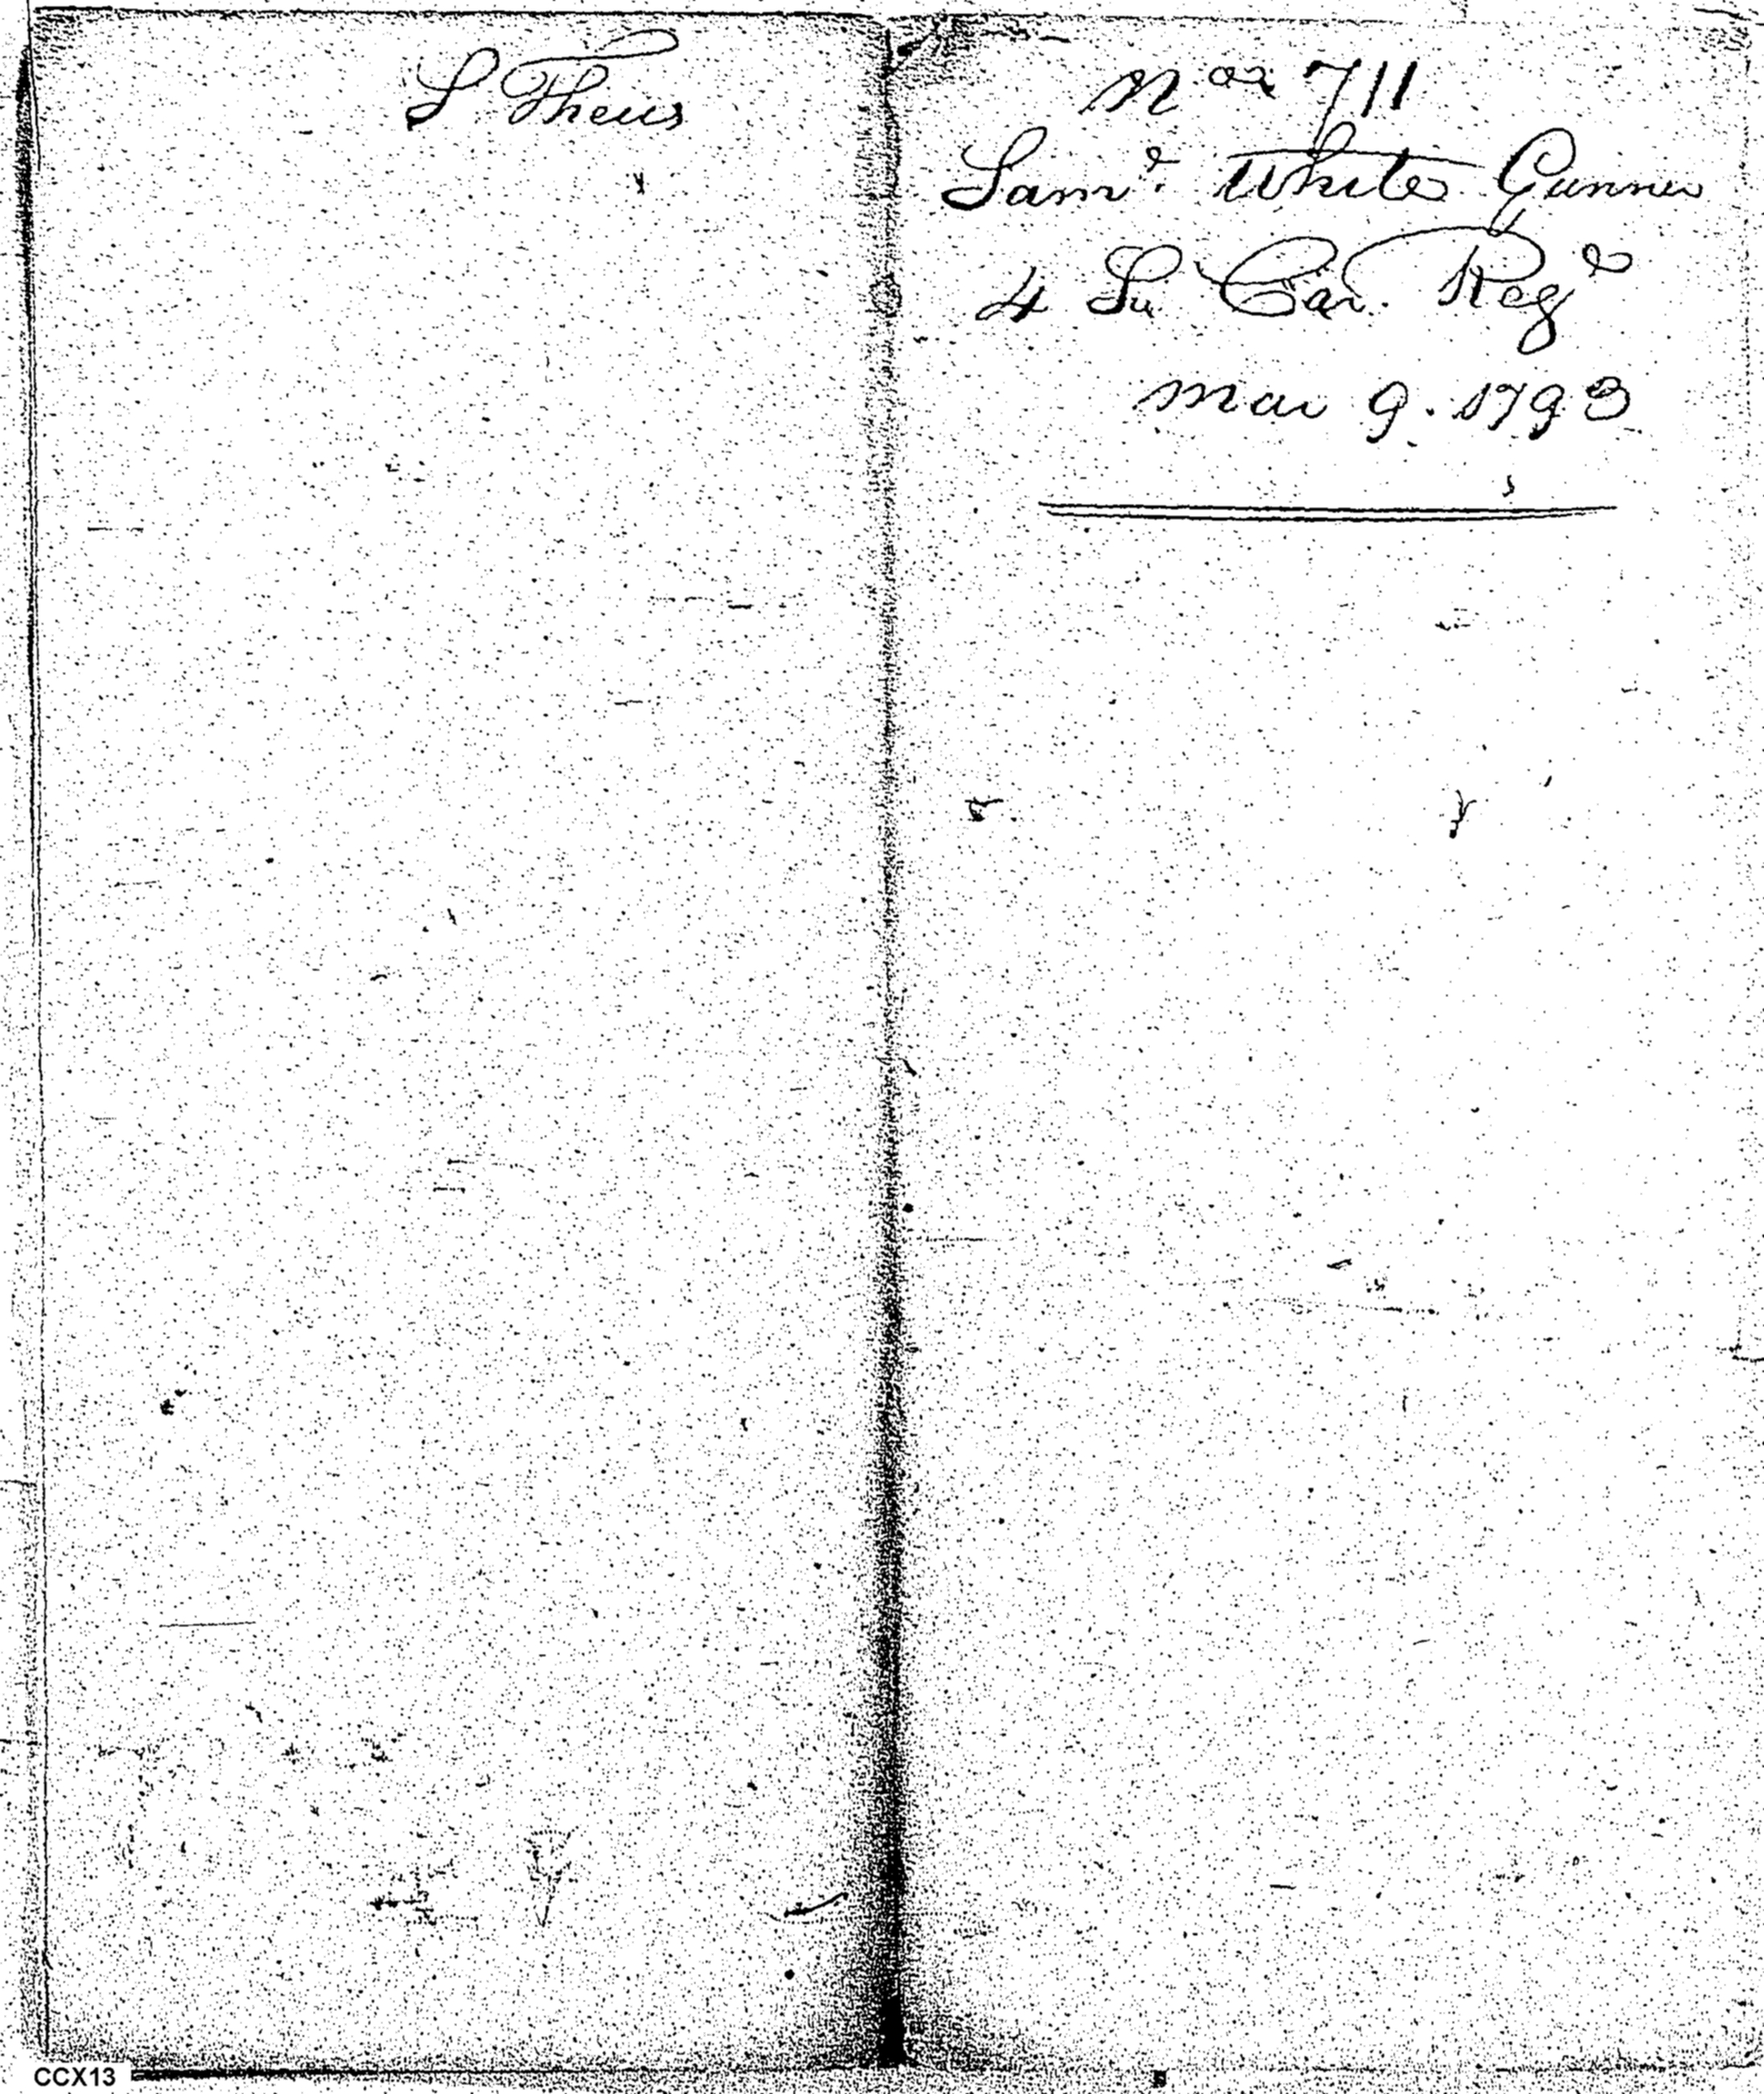 S Theus
No 711
Saml. White Gunner
4 So Car. Regt
Mar 9. 1793
CCX13